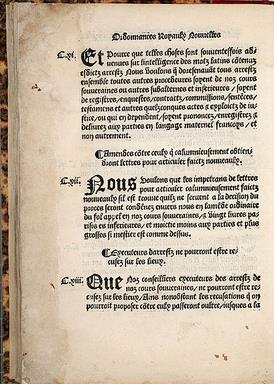 Ordonnances Royaulx Nouvelles
C.xi. Et Pource que telles choses sont souventesfois ad
venues sur lintelligence des motz latins côtenuz
esdictz arrestz Nous voulons q̃ doresenauãt tous arrestz
ensemble toutes autres procedeures soyent de noz cours
souveraines ou autres subalternes et inferieures / soyent
de registres / enquestes / contractz / commissions / sentẽces /
testamens et autres quelzconques actes & exploictz de ius
tice / ou qui en dependent / soyent prononcez / enregistrez &
delivrez aux parties en langage maternel francoys / et
non autrement.
¶ Amendes côtre ceulx q̃ calumnieusement obtien
dront lettres pour articuler faictz nouveaulx.
C.xii. Nous Voulons que les impetrans de lettres
pour articuler calumnieusement faictz
nouveaulx sil est trouve quilz ne servent a la decision du
proces seront condẽnez envers nous en lamẽde ordinaire
du fol appel en noz cours souveraines / & vingt livres pa
risis es inferieures / et moictie moins aux parties et plus
grosses si mestier est comme dessus.
¶ Executeurs darrestz ne pourront estre re
cusez sur les lieux.
C.xiii. Que Noz conseilliers executeurs des arrestz de
noz cours souveraines / ne pourront estre re
cusez sur les lieux / Ains nonobstant les recusations q̃ on
pourroit proposer côtre eulx passeront oultre / iusques a la